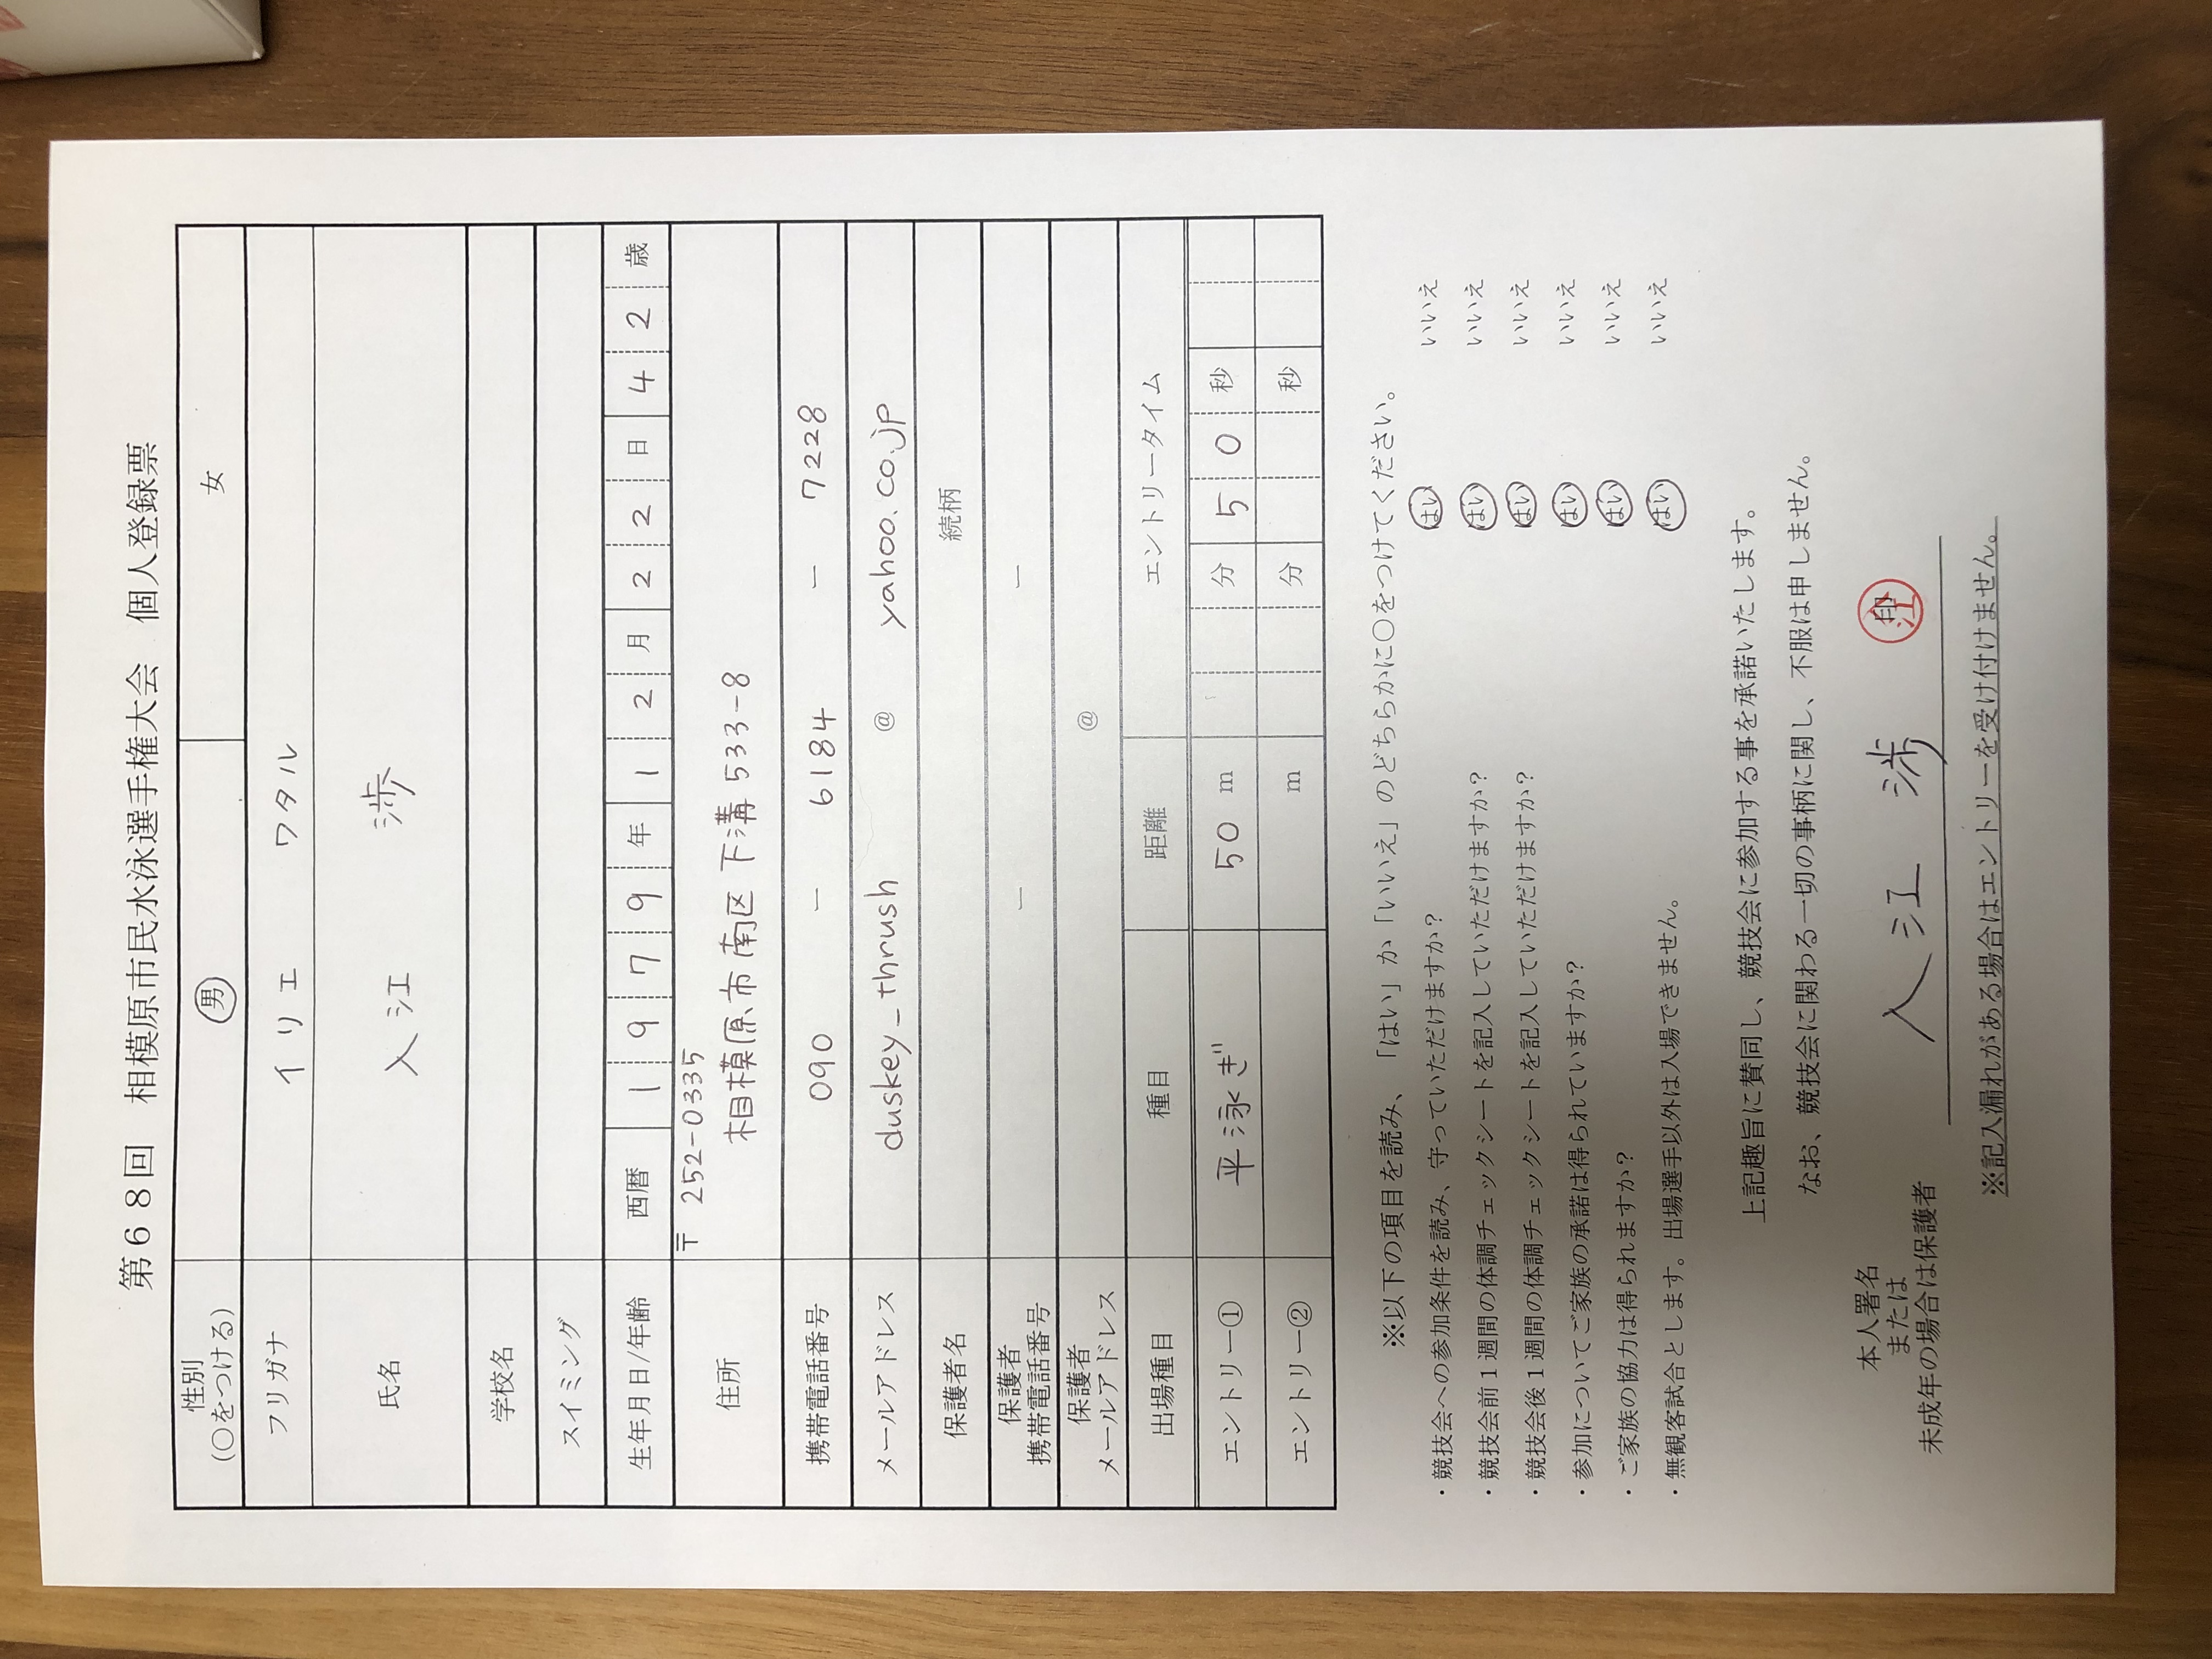 第６８回　相模原市民水泳選手権大会　個人登録票
性別
(○をつける) 男 女
フリガナ イリエ ワタル
氏名 入江 渉
学校名
スイミング
生年月日/年齢 西暦 1979年12月22日42歳
住所 〒 252-0335
相模原市南区下溝533-8
携帯電話番号 090 － 6184 － 7228
メールアドレス duskey_thrush @ yahoo.co.jp
保護者名 続柄
保護者
携帯電話番号 － －
保護者
メールアドレス @
出場種目 種目 距離 エントリータイム
エントリー① 平泳ぎ 50 m 分 50 秒
エントリー② m 分 秒
※以下の項目を読み、「はい」か「いいえ」のどちらかに○をつけてください。
・競技会への参加条件を読み、守っていただけますか？ はい いいえ
・競技会前１週間の体調チェックシートを記入していただけますか？ はい いいえ
・競技会後１週間の体調チェックシートを記入していただけますか？ はい いいえ
・参加についてご家族の承諾は得られていますか？ はい いいえ
・ご家族の協力は得られますか？ はい いいえ
・無観客試合とします。出場選手以外は入場できません。 はい いいえ
上記趣旨に賛同し、競技会に参加する事を承諾いたします。
なお、競技会に関わる一切の事柄に関し、不服は申しません。
本人署名
または
未成年の場合は保護者 入江 渉 印 入江
※記入漏れがある場合はエントリーを受け付けません。